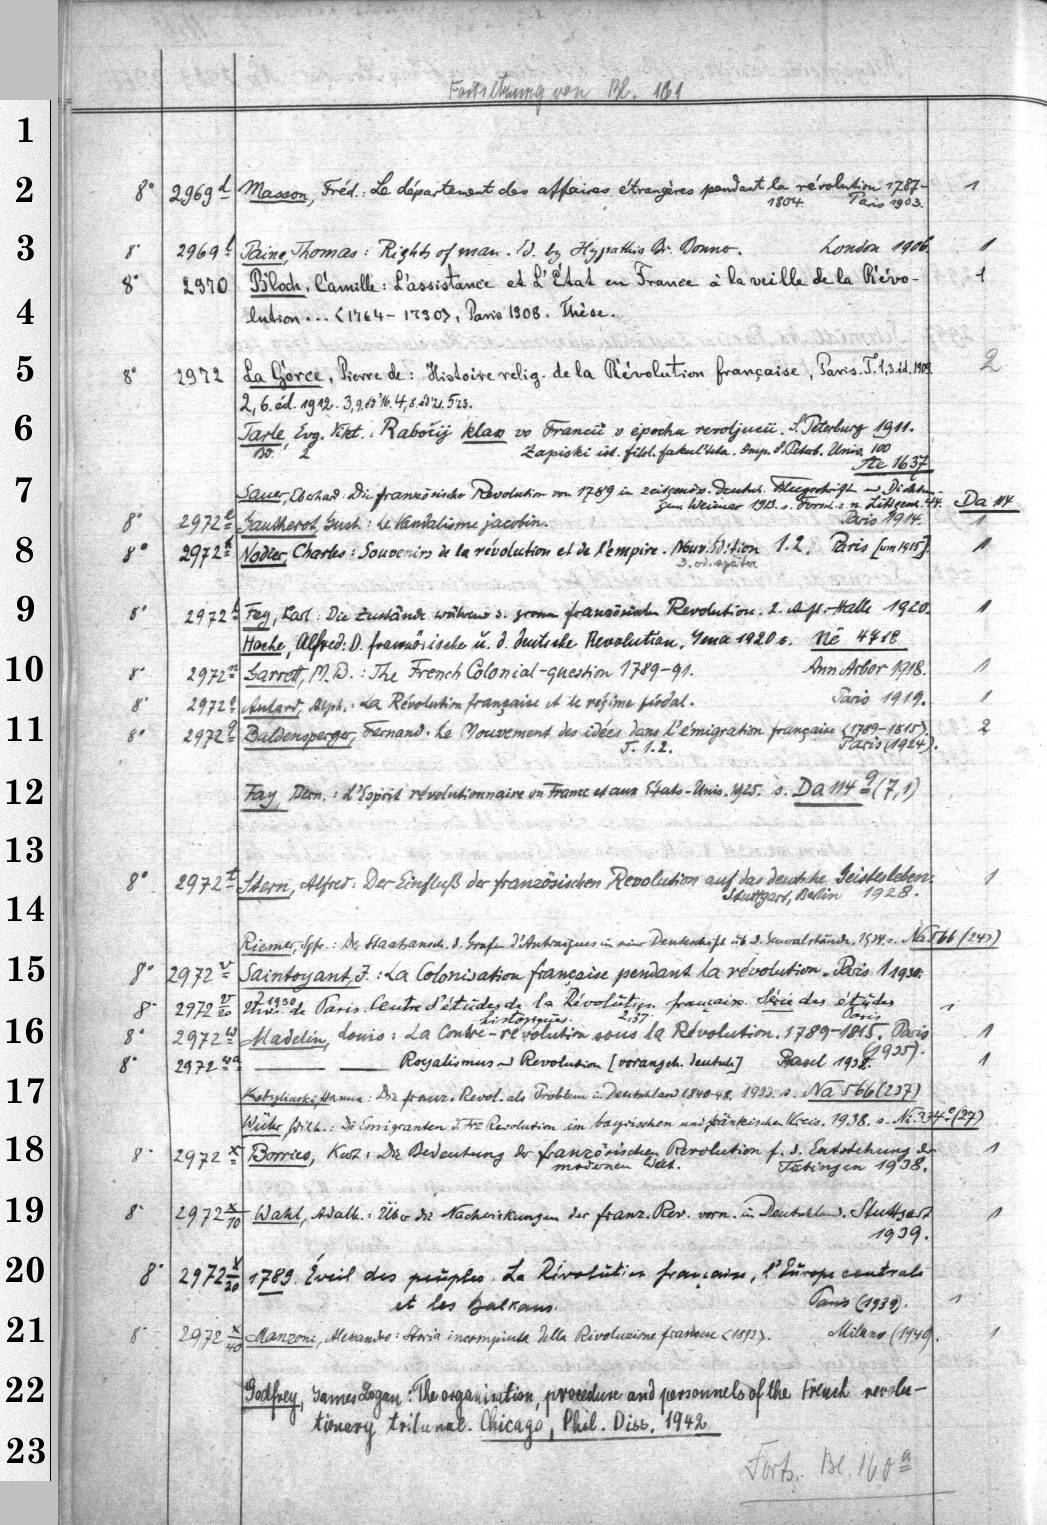 Fortsetzung von Bl. 161
1
2 8° 2969 d Masson, Fréd.: Le département des affaires étrangères pendant la révolution 1787-
1804. Paris 1903. 1
3 8° 2969 f Paine, Thomas: Rights of man. Ed. by Hypathia Br. Bonner. London 1906. 1
8° 2970 Bloch, Camille: L'assistance et L'État en France à la veille de la Révo- 1
4 lution... <1764-1790>, Paris 1908. Thèse.
5 8° 2972 La Gorce, Pierre de: Histoire relig. de la Révolution française, Paris. T. 1, 3. éd. 1909. 2
2, 6. éd. 1912. 3, 9. éd '16. 4, 8. éd '21. 5 '23.
6 Tarle, Evg. Vikt.: Rabočij klass vo Francii v epochu revoljucii. S. Peterburg 1911.
Bd. 2 Zapiski ist. filol. fakul'teta. Imp. S. Peterb. Univ. 100
Ac 1637
7 Sauer, Eberhard: Die französische Revolution von 1789 in zeitgenöss. deutsch. Flugschrift. u. Dichten.
zum Weimar 1913. s. Forsch. z. n. Littgesch. 44. Da 114
8° 2972 e Gautherot, Gust.: Le Vandalisme jacobin. Paris 1914. 1
8 8° 2972 k Nodier, Charles: Souvenirs de la révolution et de l'empire. Nouv. Édition 1.2. Paris [um 1915] 1
3. od. später
9 8° 2972 l Fey, Karl: Die Zustände während d. grossen französischen Revolution. 2. Aufl. Halle 1920. 1
Hoche, Alfred: D. französische u. d. deutsche Revolution. Jena 1920.
10 8° 2972 n Garrett, M. B.: The French Colonial-question 1789-91. Ann Arbor 1918. 1
8° 2972 Aulard, Alph.: La Révolution française et le régime féodal. Paris 1919. 1
11 8° 2972 q Baldensperger, Fernand. Le Mouvement des idées dans l'émigration française (1789-1815). 2
T. 1.2. Paris (1924).
12 Fay, Bern.: L'Esprit révolutionnaire en France et aux États-Unis. 1925. s. Da 114 q (7,1)
13
8° 2972 t Stern, Alfred: Der Einfluß der französischen Revolution auf das deutsche Geistesleben. 1
14 Stuttgart, Berlin 1928.
Riemer, Sgfr.: Die Staatsansch. d. Grafen d'Antraigues in seiner Denkschrift üb. d. Generalstände. 1934. s. Na 566 (243)
15 8° 2972 v Saintoyant, J.: La Colonisation française pendant la révolution. Paris 1 1930.
8° 2972 v/20 Univ. de Paris. Centre d'études de la Révolution française. Série des études 1
historiques. 2. 1937. Paris
16 8° 2972 w Madelin, Louis: La Contre-révolution sous la Révolution. 1789-1815. Paris 1
(1935).
8° 2972 wa —— —— Royalismus u. Revolution [vorangeh. deutsch] Basel 1938. 1
17 Kobylinski, Hanna: Die franz. Revol. als Problem in Deutschland 1840-48. 1933. s. Na 566 (237)
Wühr, Wilh.: Die Emigranten d. Frz. Revolution im bayrischen und fränkischen Kreis. 1938. s. Ni 334 e (27)
18 8° 2972 x Borries, Kurt: Die Bedeutung der französischen Revolution f. d. Entstehung der 1
modernen Welt. Tübingen 1938.
19 8° 2972 x/10 Wahl, Adalb.: Über die Nachwirkungen der franz. Rev. vorn. in Deutschland. Stuttgart 1
1939.
20 8° 2972 x/20 1789. Éveil des peuples. La Révolution française, l'Europe centrale
et les balkans. Paris (1939). 1
21 8° 2972 x/40 Manzoni, Alessandro: Storia incompiuta della Rivoluzione francese <1893>. Milano (1940). 1
22 Godfrey, James Logan: The organization, procedure and personnels of the French revolu-
tionary tribunal. Chicago, Phil. Diss. 1942
23
Forts. Bl. 160 a